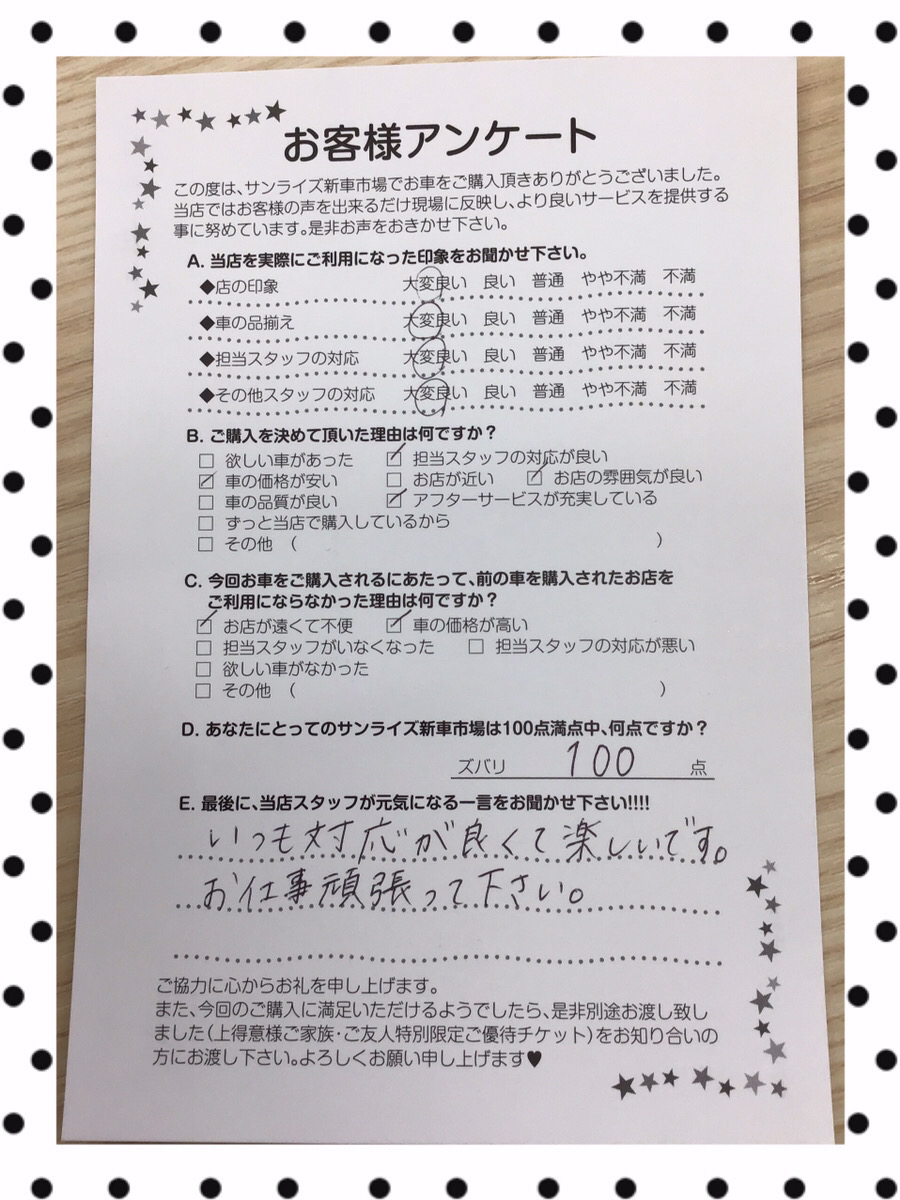 お客様アンケート
この度は、サンライズ新車市場でお車をご購入頂きありがとうございました。
当店ではお客様の声を出来るだけ現場に反映し、より良いサービスを提供する
事に努めています。是非お声をおきかせ下さい。
A. 当店を実際にご利用になった印象をお聞かせ下さい。
◆店の印象 大変良い 良い 普通 やや不満 不満
◆車の品揃え 大変良い 良い 普通 やや不満 不満
◆担当スタッフの対応 大変良い 良い 普通 やや不満 不満
◆その他スタッフの対応 大変良い 良い 普通 やや不満 不満
B. ご購入を決めて頂いた理由は何ですか？
□ 欲しい車があった ☑ 担当スタッフの対応が良い
☑ 車の価格が安い □ お店が近い ☑ お店の雰囲気が良い
□ 車の品質が良い ☑ アフターサービスが充実している
□ ずっと当店で購入しているから
□ その他 （ ）
C. 今回お車をご購入されるにあたって、前の車を購入されたお店を
ご利用にならなかった理由は何ですか？
☑ お店が遠くて不便 ☑ 車の価格が高い
□ 担当スタッフがいなくなった □ 担当スタッフの対応が悪い
□ 欲しい車がなかった
□ その他 （ ）
D. あなたにとってのサンライズ新車市場は100点満点中、何点ですか？
ズバリ 100 点
E. 最後に、当店スタッフが元気になる一言をお聞かせ下さい!!!!
いつも対応が良くて楽しいです。
お仕事頑張って下さい。
ご協力に心からお礼を申し上げます。
また、今回のご購入に満足いただけるようでしたら、是非別途お渡し致し
ました（上得意様ご家族・ご友人特別限定ご優待チケット）をお知り合いの
方にお渡し下さい。よろしくお願い申し上げます♥